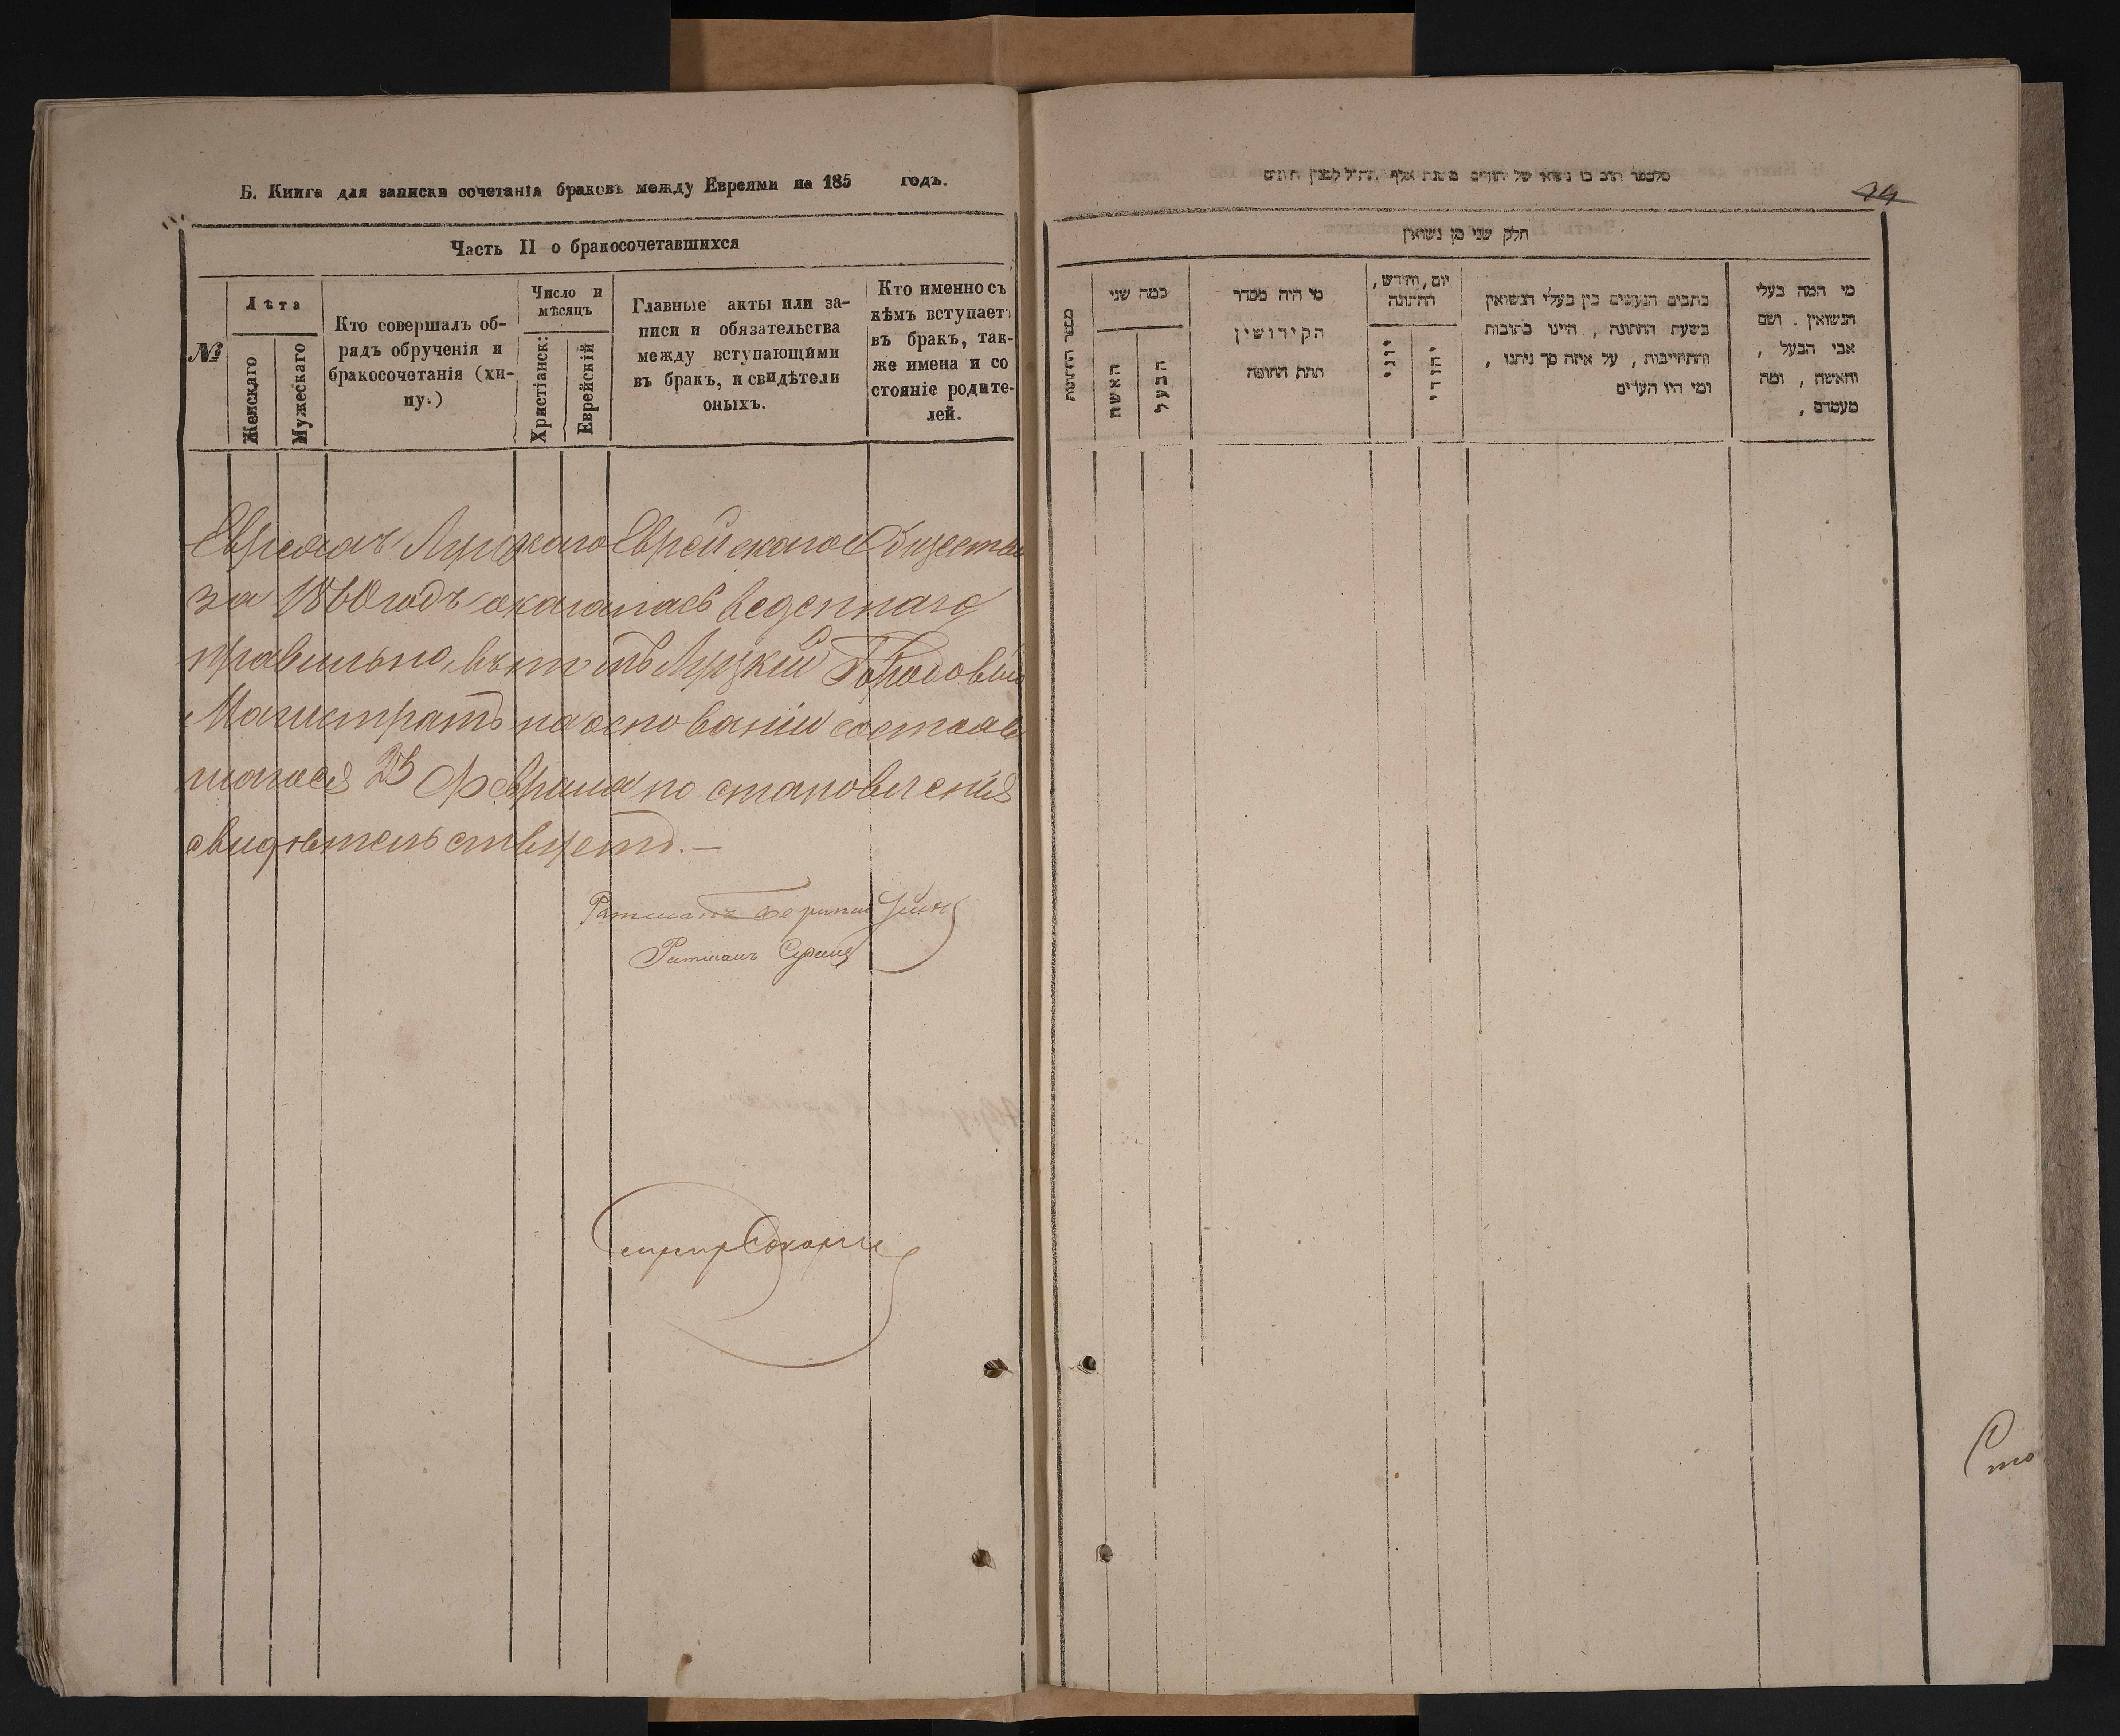 Б. Книга для записки сочетанія браковъ между Евреями на 185 годъ.
Часть II о бракосочетавшихся
№
Лѣта
Женскаго
Мужескаго
Кто совершалъ об-
рядъ обрученія и
бракосочетанія (хи-
пу.)
Число и
мѣсяцъ
Христіанск:
Еврейскій
Главные акты или за-
писи и обязательства
между вступающими
въ брак, и свидѣтели
оныхъ.
Кто именно съ
кѣмъ вступаетъ
въ бракъ, так-
же имена и со
стояніе родите-
лей.
Луцкаго Еврейскаго Общества
за 1860 годъ оказалась веденною
правильно, въ томъ Луцкій Городовый
Магистратъ на основаніи состояв
шагося 23 Февраля постановленія
свидѣтельствуетъ.—
Ратманъ
Ратманъ
44
חלק שני מן נשואין
מספר החתונות
כמה שני
האשה
הבעל
מי היה מסדר
הקידושין
תחת החופה
יום, וחודש,
החתונה
יוני
יהודי
כתבים הנעשים בין בעלי הנשואין
בשעת החתונה, היינו כתובות
והתחייבות, על איזה סך ניתנו,
ומי היו העדים
מי המה בעלי
הנשואין. ושם
אבי הבעל,
והאשה, ומה
מעמדם,
Сто